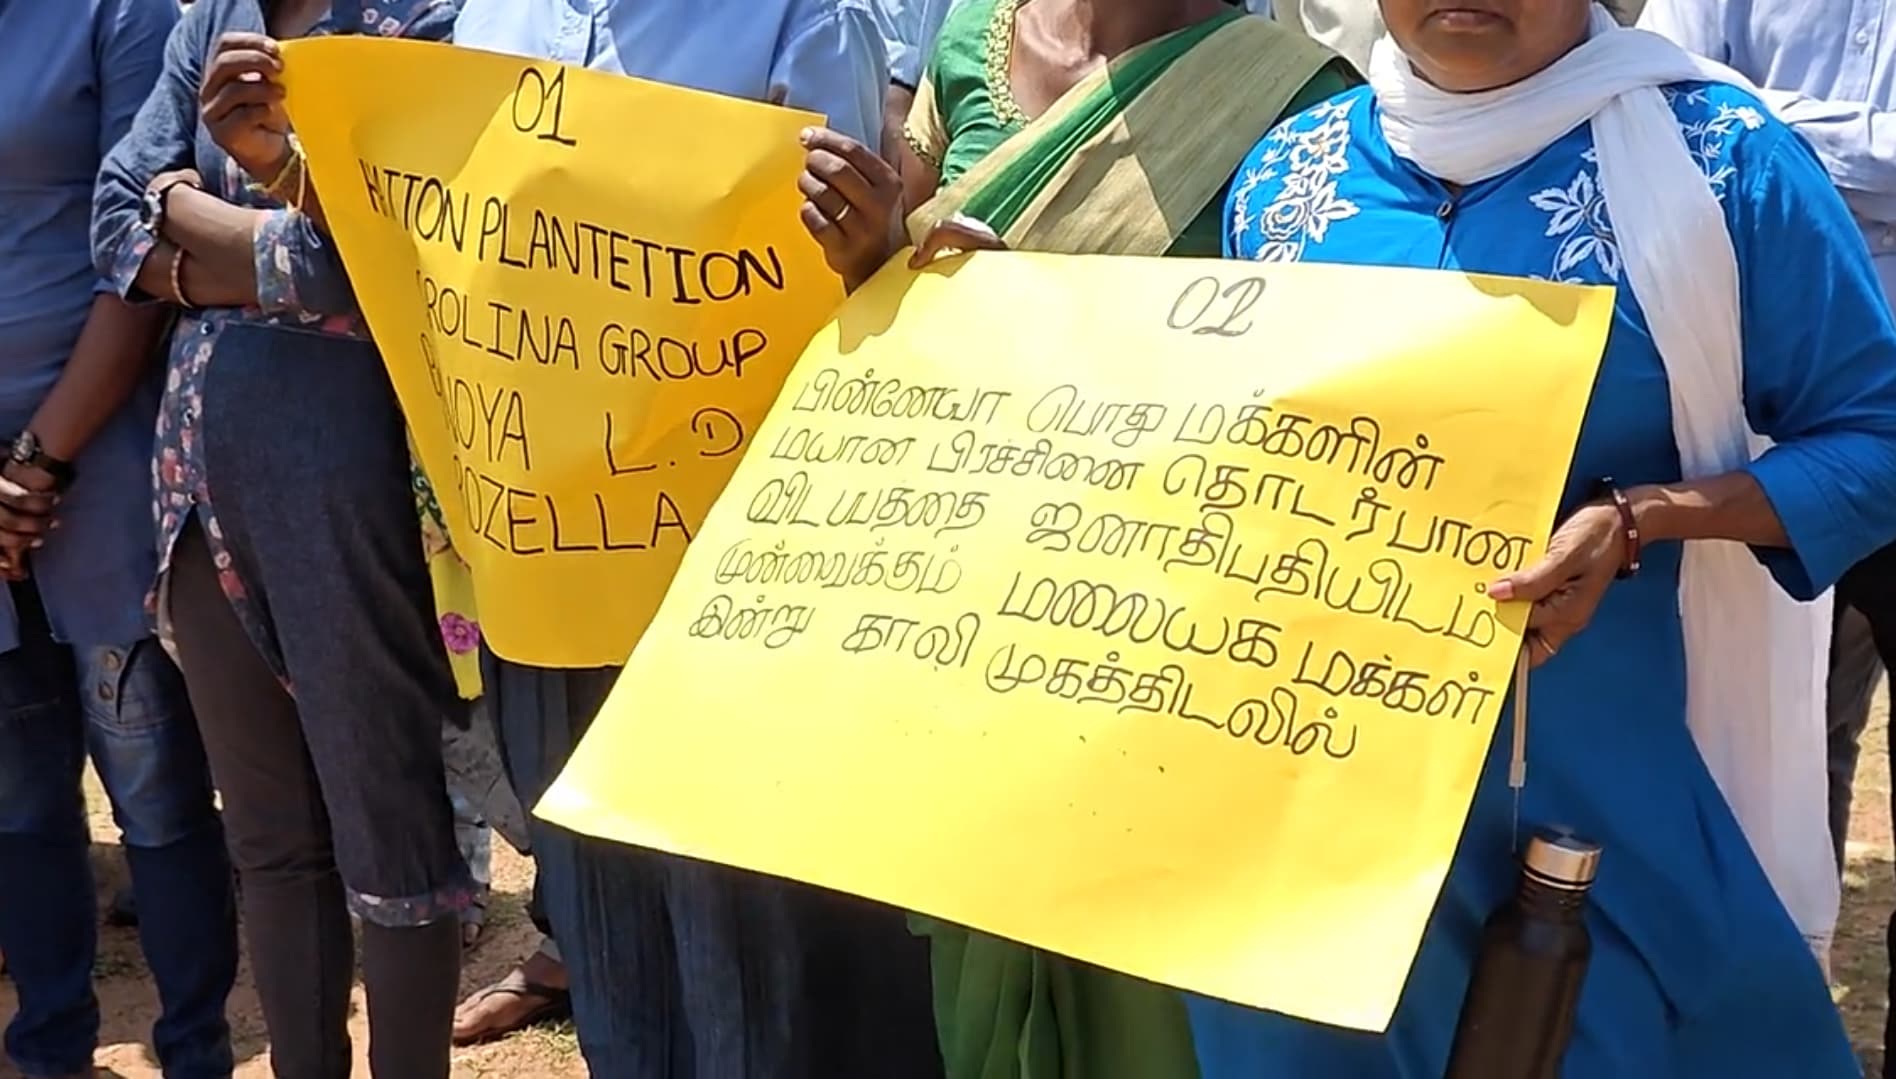 01
HATTON PLANTETION
CAROLINA GROUP
BINOYA L.D
ROZELLA
02
பின்னேயா பொது மக்களின்
மயான பிரச்சினை தொடர்பான
விடயத்தை ஜனாதிபதியிடம்
முன்வைக்கும் மலையக மக்கள்
இன்று காலி முகத்திடலில்